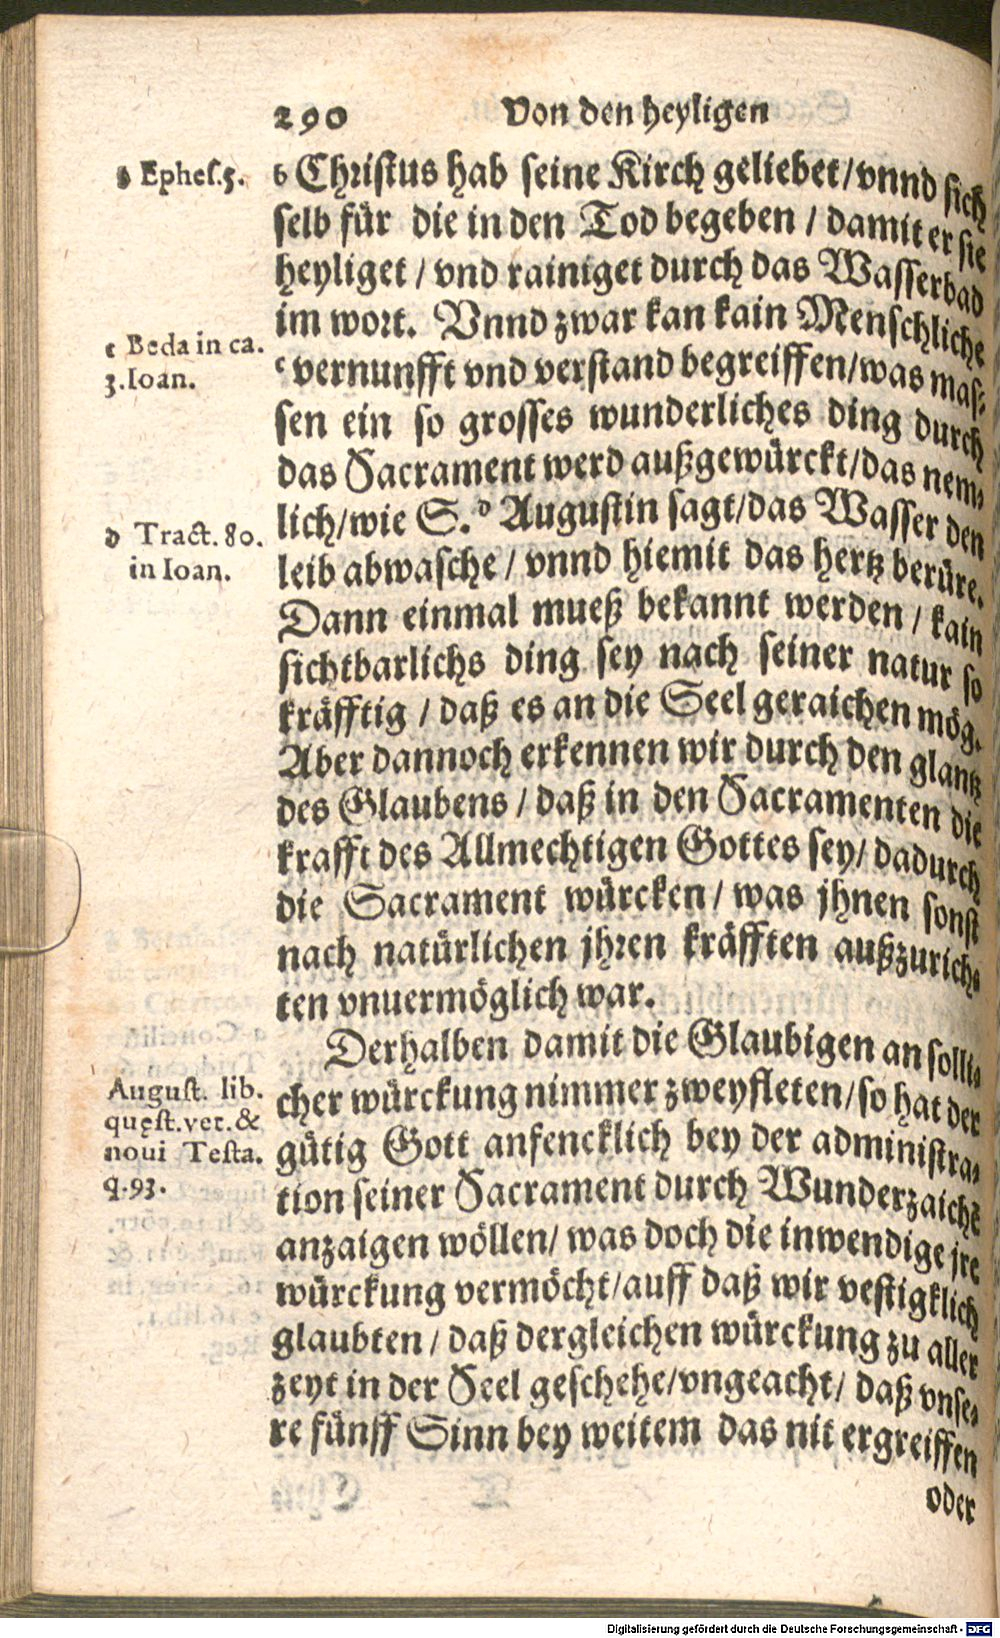 290 Von den heyligen
b Ephes.5.
b Christus hab seine Kirch geliebet/vnnd sich
selb für die in den Tod begeben / damit er sie
heyliget / vnd rainiget durch das Wasserbad
im wort. Vnnd zwar kan kain Menschliche
c Beda in ca.
3.Ioan.
c vernunfft vnd verstand begreiffen/was mas⸗
sen ein so grosses wunderliches ding durch
das Sacrament werd außgewürckt/das nem⸗
d Tract. 80.
in Ioan.
lich/wie S. d Augustin sagt/das Wasser den
leib abwasche / vnnd hiemit das hertz berüre.
Dann einmal mueß bekannt werden / kain
sichtbarlichs ding sey nach seiner natur so
kräfftig / daß es an die Seel geraichen mög.
Aber dannoch erkennen wir durch den glantz
des Glaubens / daß in den Sacramenten die
krafft des Allmechtigen Gottes sey/ dadurch
die Sacrament würcken / was jhnen sonst
nach natürlichen jhren kräfften außzurich⸗
ten vnuermöglich war.
Derhalben damit die Glaubigen an solli⸗
August. lib.
quęst.vet.&
noui Testa.
q.93.
cher würckung nimmer zweyfleten/so hat der
gütig Gott anfencklich bey der administra⸗
tion seiner Sacrament durch Wunderzaichẽ
anzaigen wöllen/ was doch die inwendige jre
würckung vermöcht/auff daß wir vestigklich
glaubten / daß dergleichen würckung zu aller
zeyt in der Seel geschehe/vngeacht/ daß vnse⸗
re fünff Sinn bey weitem das nit ergreiffen
oder
Digitalisierung gefördert durch die Deutsche Forschungsgemeinschaft - DFG